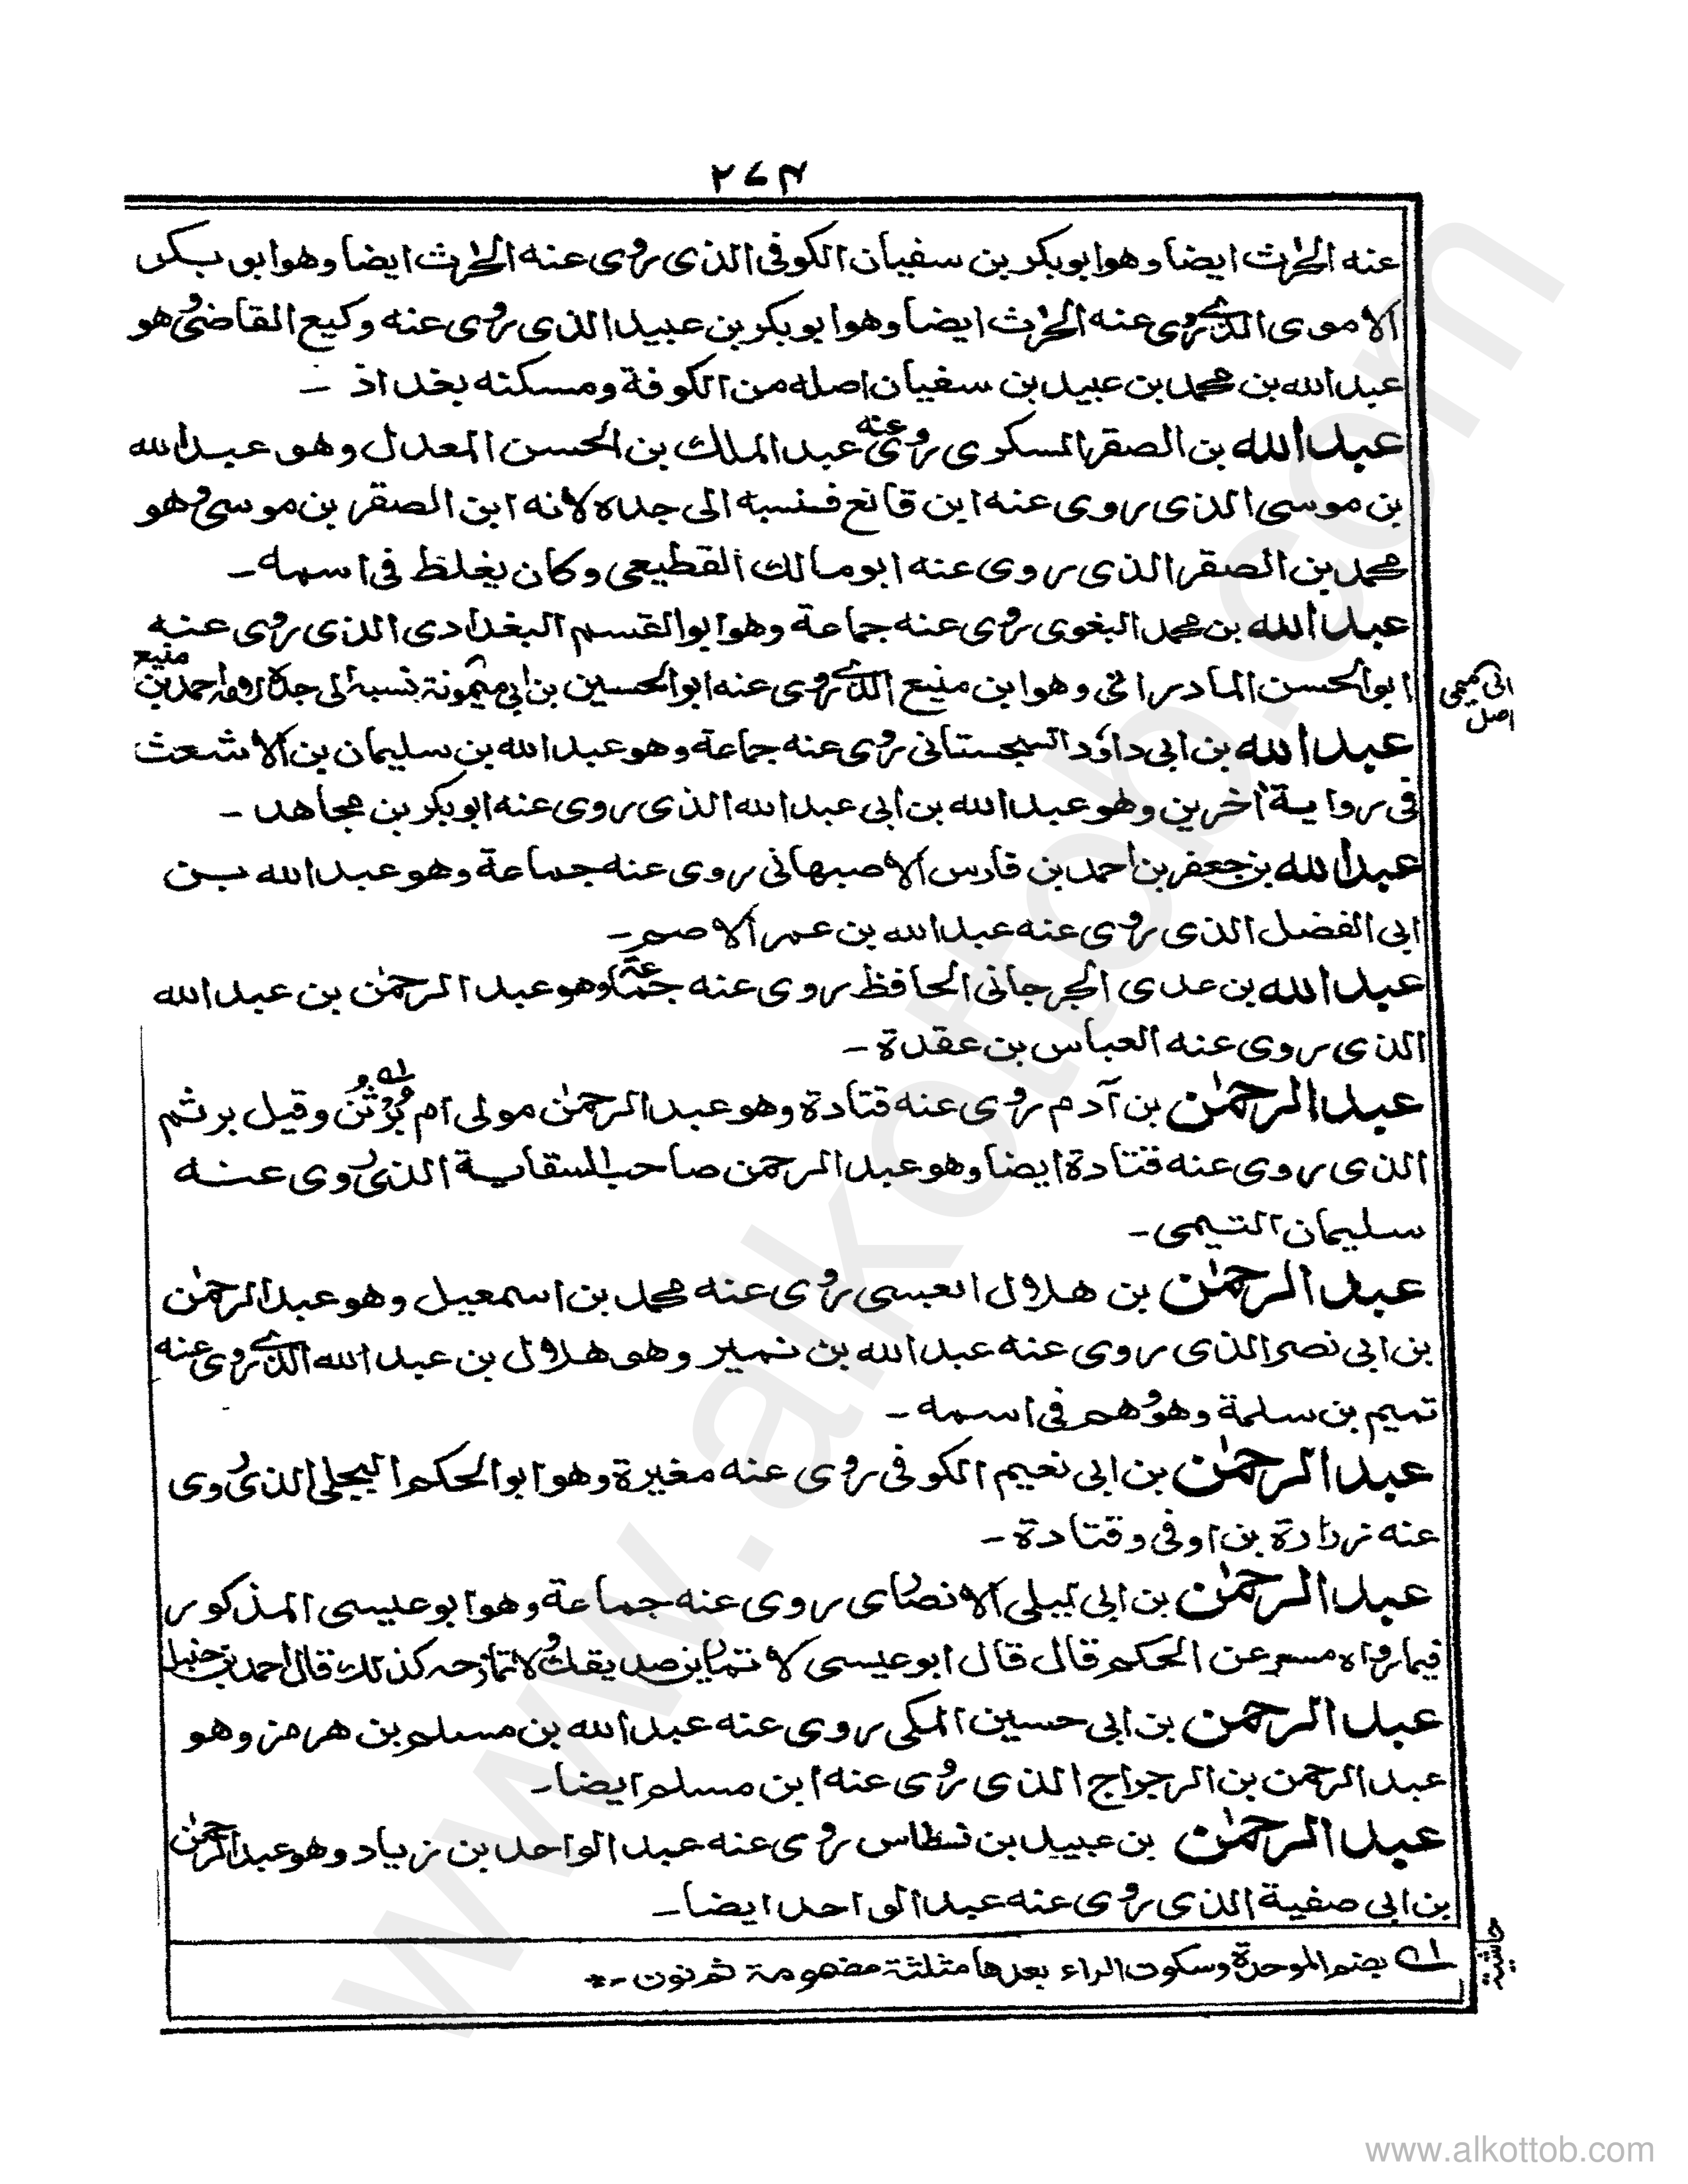 ٢٧٤
عنه الحٰرث ايضا وهو ابو بكر بن سفيان الكوفى الذى روى عنه الحٰرث ايضا وهو ابو بكر
الاموى الذى روى عنه الحٰرث ايضا وهو ابو بكر بن عبيد الذى روى عنه وكيع القاضى وهو
عبد الله بن محمد بن عبيد بن سفيان اصله من الكوفة ومسكنه بغداذ -
عبد الله بن الصقر السكرى روى عنه عبد الملك بن الحسن المعدل وهو عبد الله
بن موسى الذى روى عنه ابن قانع فنسبه الى جده لانه ابن الصقر بن موسى وهو
محمد بن الصقر الذى روى عنه ابو مالك القطيعى وكان يغلظ فى اسمه -
عبد الله بن محمد البغوى روى عنه جماعة وهو ابو القسم البغدادى الذى روى عنه
ابو الحسن المادرائى وهو ابن منيع الذى روى عنه ابو الحسين بن ابى ميمونة نسبة الى جده لامه احمد بن منيع
عبد الله بن ابى داؤد السجستانى روى عنه جماعة وهو عبد الله بن سليمان بن الاشعث
فى رواية اٰخرين وهو عبد الله بن ابى عبد الله الذى روى عنه ابو بكر بن مجاهد -
عبد الله بن جعفر بن احمد بن فارس الاصبهانى روى عنه جماعة وهو عبد الله بن
ابى الفضل الذى روى عنه عبد الله بن عمر الاصم -
عبد الله بن عدى الجرجانى الحافظ روى عنه جماعة وهو عبد الرحمٰن بن عبد الله
الذى روى عنه العباس بن عقدة -
عبد الرحمٰن بن آدم روى عنه قتادة وهو عبد الرحمٰن مولى ام بُرْثُن وقيل برثم
الذى روى عنه قتادة ايضا وهو عبد الرحمن صاحب السقاية الذى روى عنه
سليمان التيمى -
عبد الرحمٰن بن هلال العبسى روى عنه محمد بن اسمعيل وهو عبد الرحمٰن
بن ابى نصر الذى روى عنه عبد الله بن نمير وهو هلال بن عبد الله الذى روى عنه
تميم بن سلمة وهو وهم فى اسمه -
عبد الرحمٰن بن ابى نعيم الكوفى روى عنه مغيرة وهو ابو الحكم البجلى الذى روى
عنه زرارة بن اوفى وقتادة -
عبد الرحمٰن بن ابى ليلى الانصارى روى عنه جماعة وهو ابو عيسى المذكور
فيما رواه مسعر عن الحكم قال قال ابو عيسى لا تمارين صديقك ولا تمازحه كذلك قال احمد بن حنبل
عبد الرحمن بن ابى حسين المكى روى عنه عبد الله بن مسلم بن هرمز وهو
عبد الرحمن بن الرجراج الذى روى عنه ابن مسلم ايضا -
عبد الرحمٰن بن عبيد بن نسطاس روى عنه عبد الواحد بن زياد وهو عبد الرحمٰن
بن ابى صفية الذى روى عنه عبد الواحد ايضا -
حاشية
بضم الموحدة وسكون الراء بعدها مثلثة مضمومة ثم نون -
www.alkottob.com
www.alkottob.com